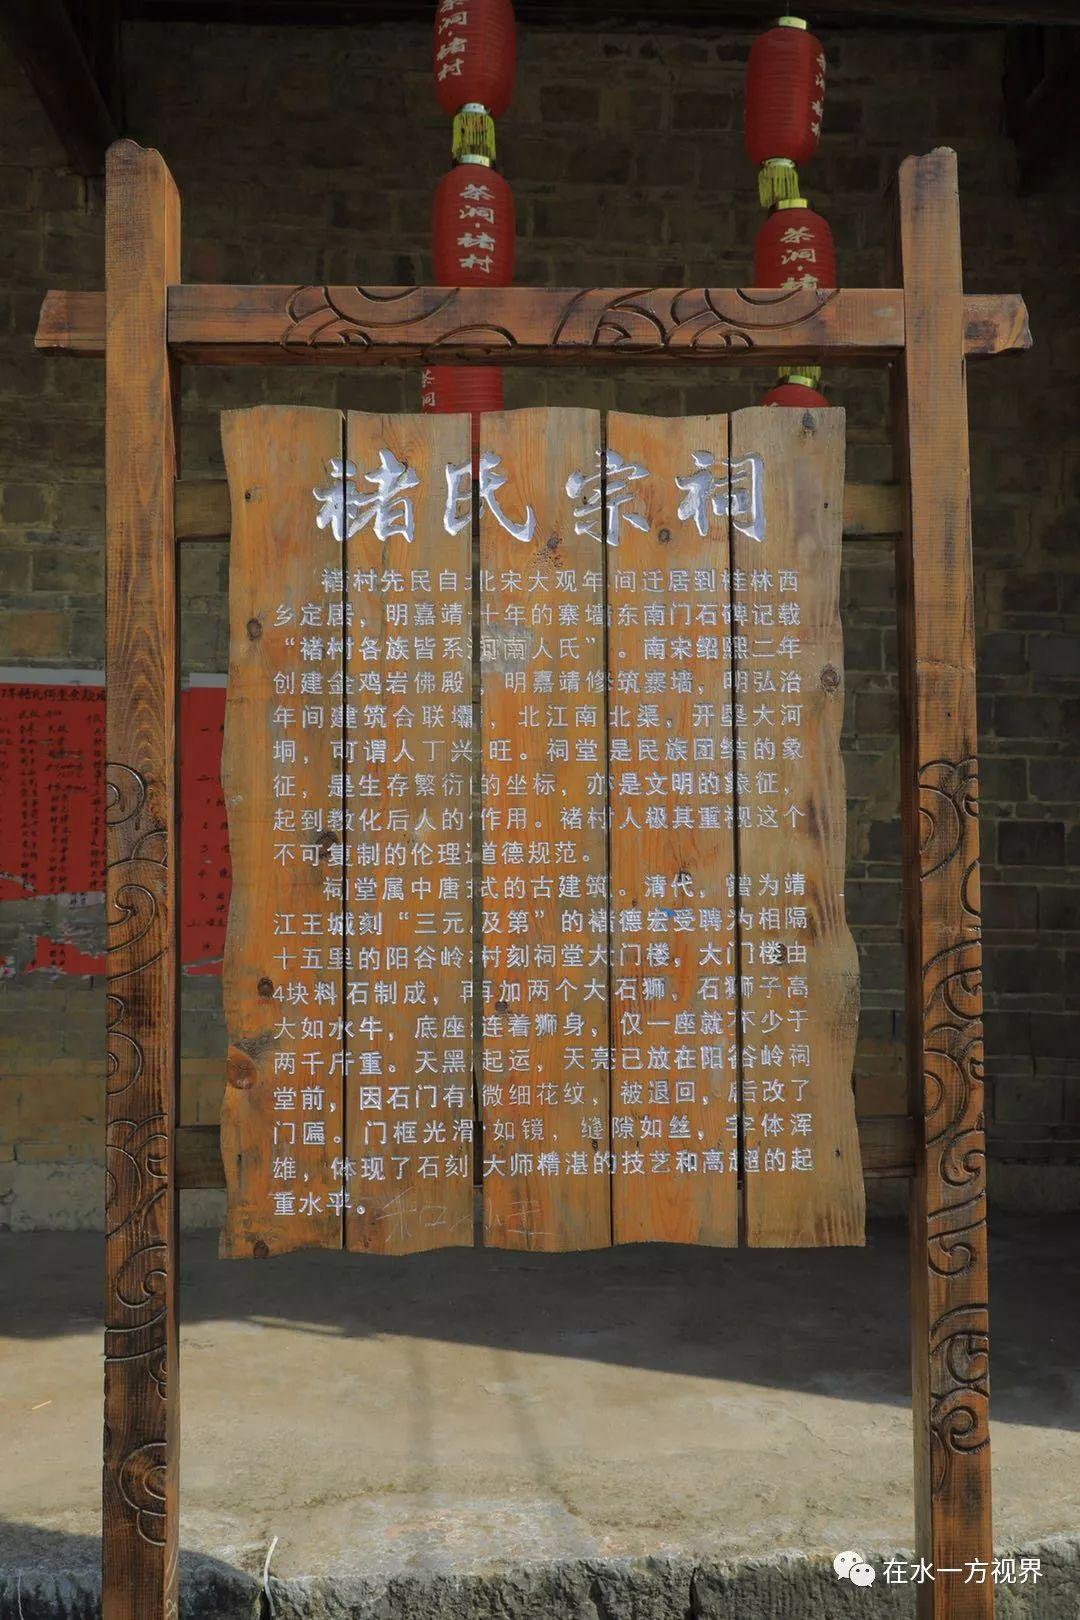 茶洞·褚村
茶洞·褚村
茶洞·褚村
茶洞·褚
茶洞
褚氏宗祠
褚村先民自北宋大观年间迁居到桂林西
乡定居，明嘉靖十年的寨墙东南门石碑记载
“褚村各族皆系河南人氏”。南宋绍熙二年
创建金鸡岩佛殿，明嘉靖修筑寨墙，明弘治
年间建筑合联壩，北江南北渠，开垦大河
垌，可谓人丁兴旺。祠堂是民族团结的象
征，是生存繁衍的坐标，亦是文明的象征，
起到教化后人的作用。褚村人极其重视这个
不可复制的伦理道德规范。
祠堂属中唐式的古建筑。清代，曾为靖
江王城刻“三元及第”的褚德宏受聘为相隔
十五里的阳谷岭村刻祠堂大门楼，大门楼由
4块料石制成，再加两个大石狮，石狮子高
大如水牛，底座连着狮身，仅一座就不少于
两千斤重。天黑起运，天亮已放在阳谷岭祠
堂前，因石门有微细花纹，被退回，后改了
门匾。门框光滑如镜，缝隙如丝，字体浑
雄，体现了石刻大师精湛的技艺和高超的起
重水平。
在水一方视界